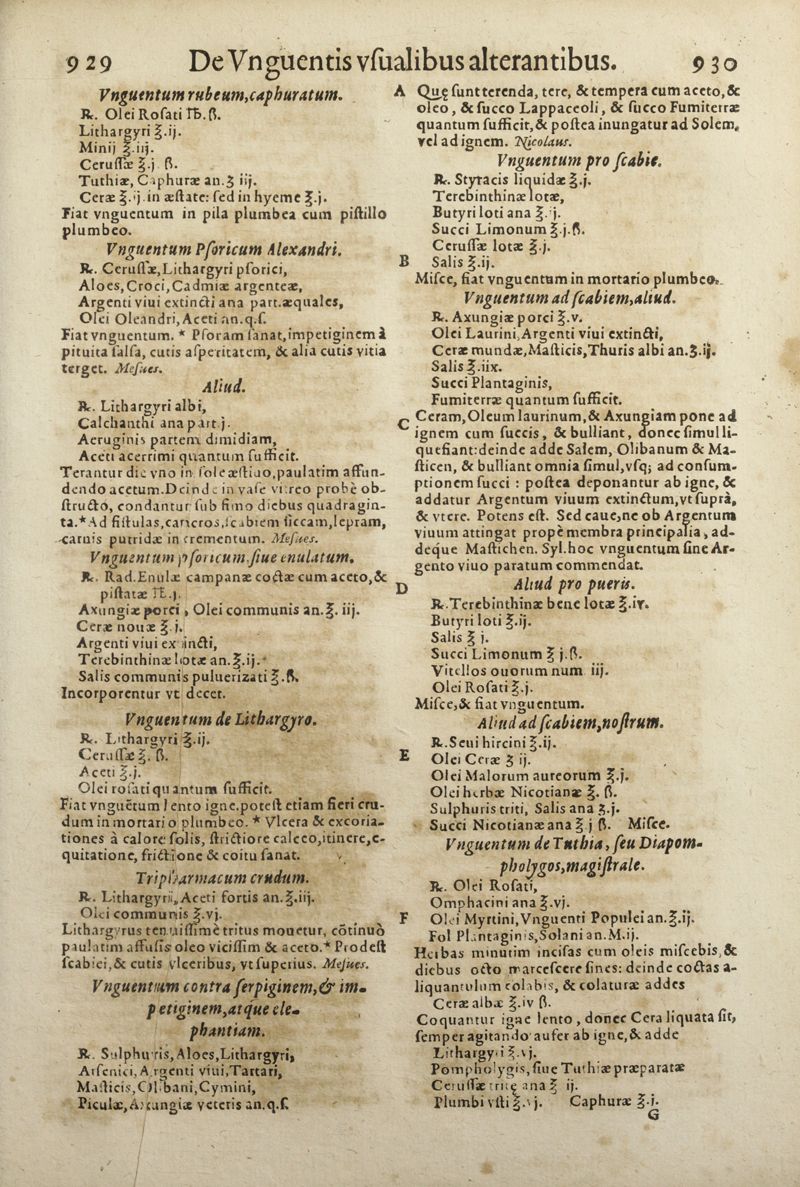 929 De Vnguentis vſualibus alterantibus. 930
Vnguentum rubeum, caphuratum.
℞. Olei Roſati ℔.ß.
Lithargyri ℥.ij.
Minij ℥.iij.
Ceruſſæ ℥.j ß.
Tuthiæ, Caphuræ an.ʒ iij.
Ceræ ℥.ij.in æſtate: ſed in hyeme ℥.j.
Fiat vnguentum in pila plumbea cum piſtillo
plumbeo.
Vnguentum Pſoricum Alexandri.
℞. Ceruſſæ, Lithargyri pſorici,
Aloes, Croci, Cadmiæ argenteæ,
Argenti viui extincti ana part.æquales,
Olei Oleandri, Aceti an.q.ſ.
Fiat vnguentum. * Pſoram ſanat, impetiginem à
pituita ſalſa, cutis aſperitatem, & alia cutis vitia
terget. Meſues.
Aliud.
℞. Lithargyri albi,
Calchanthi ana part j.
Aeruginis partem dimidiam,
Aceti acerrimi quantum ſufficit.
Terantur die vno in ſole æſtiuo, paulatim affun-
dendo acetum. Deinde in vaſe vitreo probè ob-
ſtructo, condantur ſub fimo diebus quadragin-
ta.* Ad fiſtulas, cancros, ſcabiem ſiccam, lepram,
carnis putridæ incrementum. Meſues.
Vnguentum pſoricum, ſiue enulatum.
℞. Rad. Enulæ campanæ coctæ cum aceto, &
piſtatæ ℔.j.
Axungiæ porci, Olei communis an.℥. iij.
Ceræ nouæ ℥.j.
Argenti viui extincti,
Terebinthinæ lotæ an.℥.ij.
Salis communis puluerizati ℥.ß.
Incorporentur vt decet.
Vnguentum de Lithargyro.
℞. Lithargyri ℥.ij.
Ceruſſæ ℥. ß.
Aceti ℥.j.
Olei roſati quantum ſufficit.
Fiat vnguẽtum lento igne.poteſt etiam fieri cru-
dum in mortario plumbeo. * Vlcera & excoria-
tiones à calore ſolis, ſtrictiore calceo, itinere, e-
quitatione, frictione & coitu ſanat.
Tripharmacum crudum.
℞. Lithargyrii, Aceti fortis an.℥.iij.
Olei communis ℥.vj.
Lithargyrus tenuiſſimè tritus mouetur, cõtinuò
paulatim affuſis oleo viciſſim & aceto.* Prodeſt
ſcabiei, & cutis vlceribus, vt ſuperius. Meſues.
Vnguentum contra ſerpiginem, & im-
petiginem, atque ele-
phantiam.
℞. Sulphuris, Aloes, Lithargyri,
Arſenici, Argenti viui, Tartari,
Maſticis, Olibani, Cymini,
Piculæ, Axungiæ veteris an.q.ſ.
A Quę ſunt terenda, tere, & tempera cum aceto, &
oleo, & ſucco Lappaceoli, & ſucco Fumiterræ
quantum ſufficit, & poſtea inungatur ad Solem,
vel ad ignem. Nicolaus.
Vnguentum pro ſcabie.
℞. Styracis liquidæ ℥.j.
Terebinthinæ lotæ,
Butyri loti ana ℥.ij.
Succi Limonum ℥.j.ß.
Ceruſſæ lotæ ℥.j.
B Salis ℥.ij.
Miſce, fiat vnguentum in mortario plumbeo.
Vnguentum ad ſcabiem, aliud.
℞. Axungiæ porci ℥.v.
Olei Laurini, Argenti viui extincti,
Ceræ mundæ, Maſticis, Thuris albi an.ʒ.ij.
Salis ℥.iix.
Succi Plantaginis,
Fumiterræ quantum ſufficit.
C Ceram, Oleum laurinum, & Axungiam pone ad
ignem cum ſuccis, & bulliant, donec ſimul li-
quefiant: deinde adde Salem, Olibanum & Ma-
ſticen, & bulliant omnia ſimul, vſq; ad conſum-
ptionem ſucci : poſtea deponantur ab igne, &
addatur Argentum viuum extinctum, vt ſuprà,
& vtere. Potens eſt. Sed caue, ne ob Argentum
viuum attingat propè membra principalia, ad-
deque Maſtichen. Syl. hoc vnguentum ſine Ar-
gento viuo paratum commendat.
D Aliud pro pueris.
℞. Terebinthinæ bene lotæ ℥.iv.
Butyri loti ℥.ij.
Salis ℥ j.
Succi Limonum ℥ j.ß.
Vitellos ouorum num. iij.
Olei Roſati ℥.j.
Miſce, & fiat vnguentum.
Aliud ad ſcabiem, noſtrum.
℞. Seui hircini ℥.ij.
E Olei Ceræ ʒ ij.
Olei Malorum aureorum ℥.j.
Olei herbæ Nicotianæ ℥. ß.
Sulphuris triti, Salis ana ʒ.j.
Succi Nicotianæ ana ℥ j ß. Miſce.
Vnguentum de Tuthia, ſeu Diapom-
pholygos, magiſtrale.
℞. Olei Roſati,
Omphacini ana ℥.vj.
F Olei Myrtini, Vnguenti Populei an.℥.ij.
Fol Plantaginis, Solani an. M.ij.
Herbas minutim inciſas cum oleis miſcebis, &
diebus octo marceſcere ſines: deinde coctas a-
liquantulum colabis, & colaturæ addes
Ceræ albæ ℥.iv ß.
Coquantur igne lento, donec Cera liquata ſit,
ſemper agitando aufer ab igne, & adde
Lithargyri ℥.vj.
Pompholygis, ſiue Tuthiæ præparatæ
Ceruſſæ tritę ana ℥ ij.
Plumbi vſti ℥.vj. Caphuræ ℥.j.
G